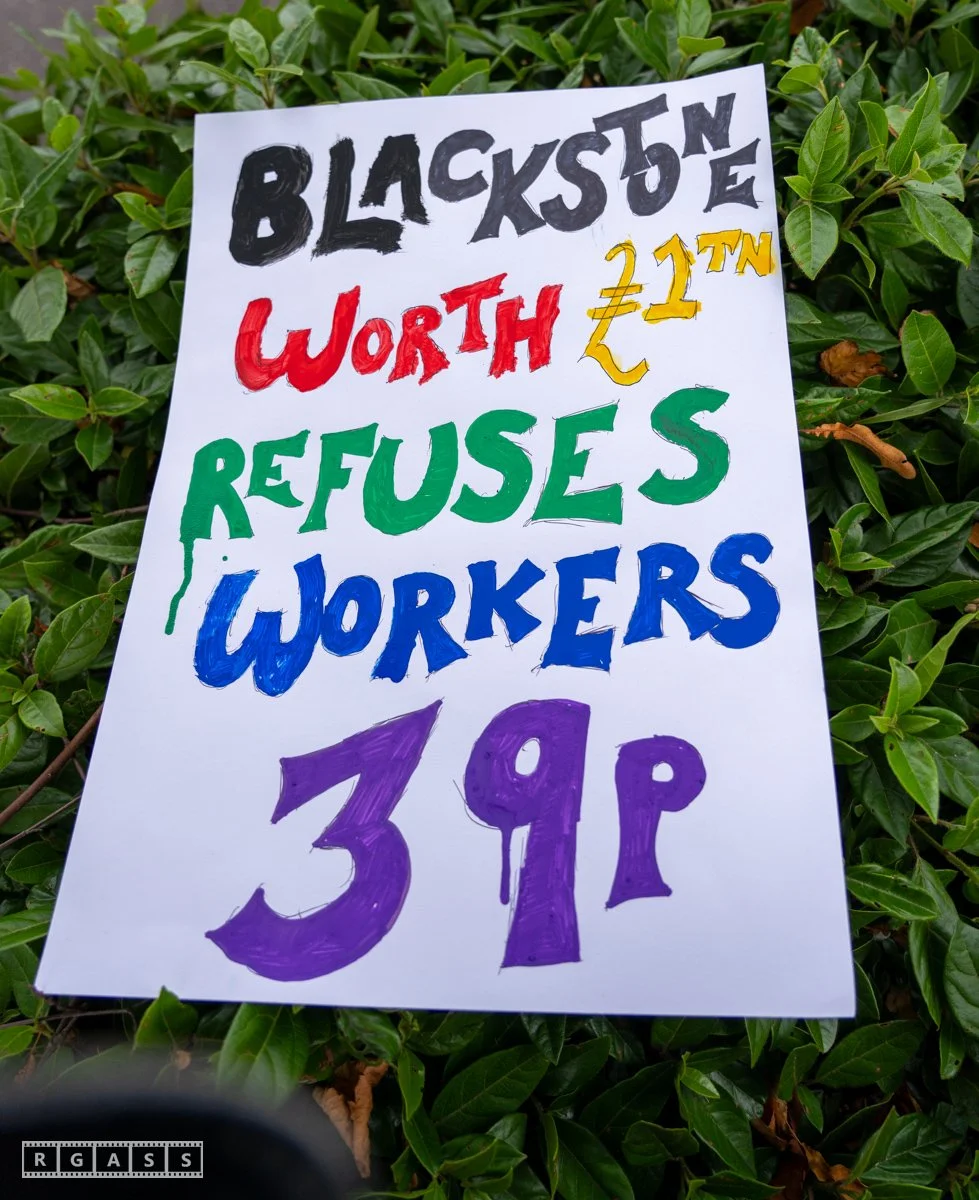 BLACKSTONE
WORTH £1TN
REFUSES
WORKERS
39P
RGASS